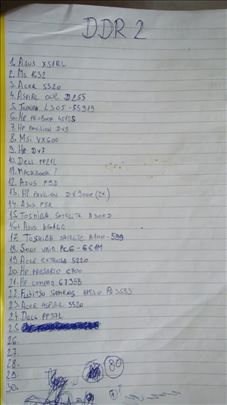 DDR 2
1. Asus X51RL
2. MSI 1632
3. Acer 5520
4. Aspire one D255
5. Toshiba L305-S5919
6. HP ProBook 4515S
7. HP Pavilion DV5
8. MSI VX600
9. HP DV7
10. Dell PP21L
11. MacBook
12. Asus F9D
13. HP Pavilion DV9000 (2X)
14. Asus F5R
15. Toshiba Satellite
16. Asus
17. Toshiba Satellite A100-599
18. Sony Vaio PCG-6C1M
19. Acer Extensa 5220
20. HP Presario C700
21. HP Compaq 6735B
22. Fujitsu Siemens
23. Acer Aspire 5520
24. Dell PP37L
25.
26.
27.
28.
29.
30.
80